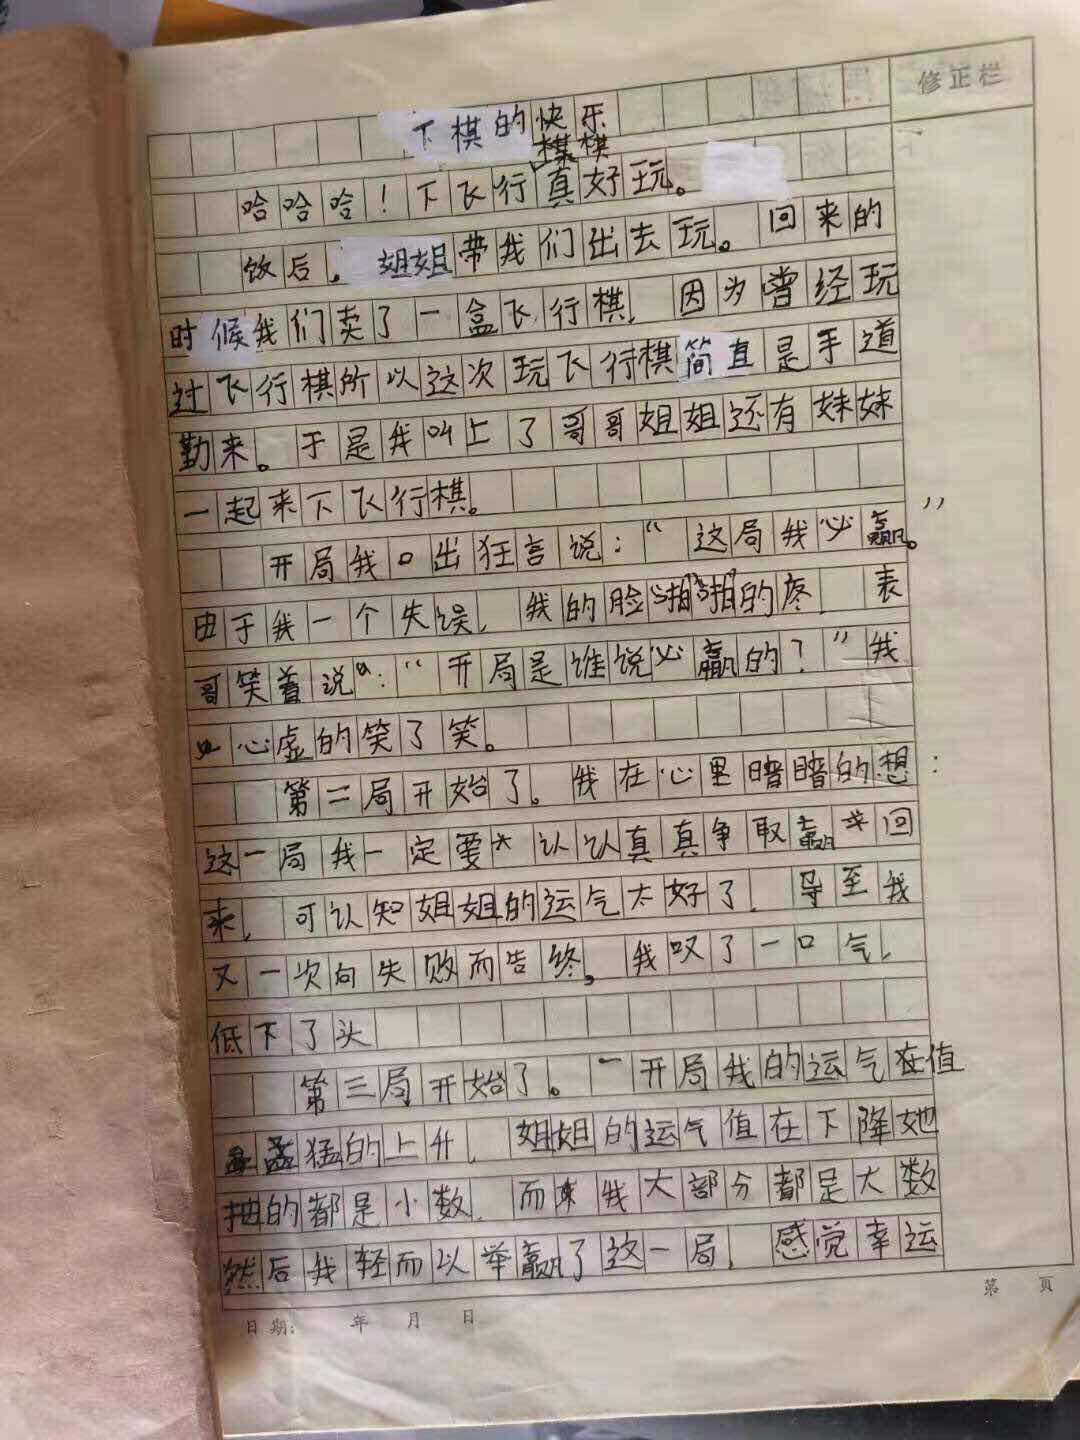 修正栏
下棋的快乐
哈哈哈！下飞行棋棋真好玩。
饭后，姐姐带我们出去玩。回来的
时候我们卖了一盒飞行棋，因为曾经玩
过飞行棋所以这次玩飞行棋简直是手道
勤来。于是我叫上了哥哥姐姐还有妹妹
一起来下飞行棋。
开局我口出狂言说：“这局我必赢。”
由于我一个失误，我的脸“啪”“啪”的疼，表
哥笑着说：“开局是谁说必赢的？”我
心虚的笑了笑。
第二局开始了。我在心里暗暗的想：
这一局我一定要认认真真争取赢回
来，可认知姐姐的运气太好了，导至我
又一次向失败而告终，我叹了一口气，
低下了头
第三局开始了。一开局我的运气在值
猛的上升，姐姐的运气值在下降她
抽的都是小数，而我大部分都是大数
然后我轻而以举赢了这一局，感觉幸运
日期： 年 月 日
第 页